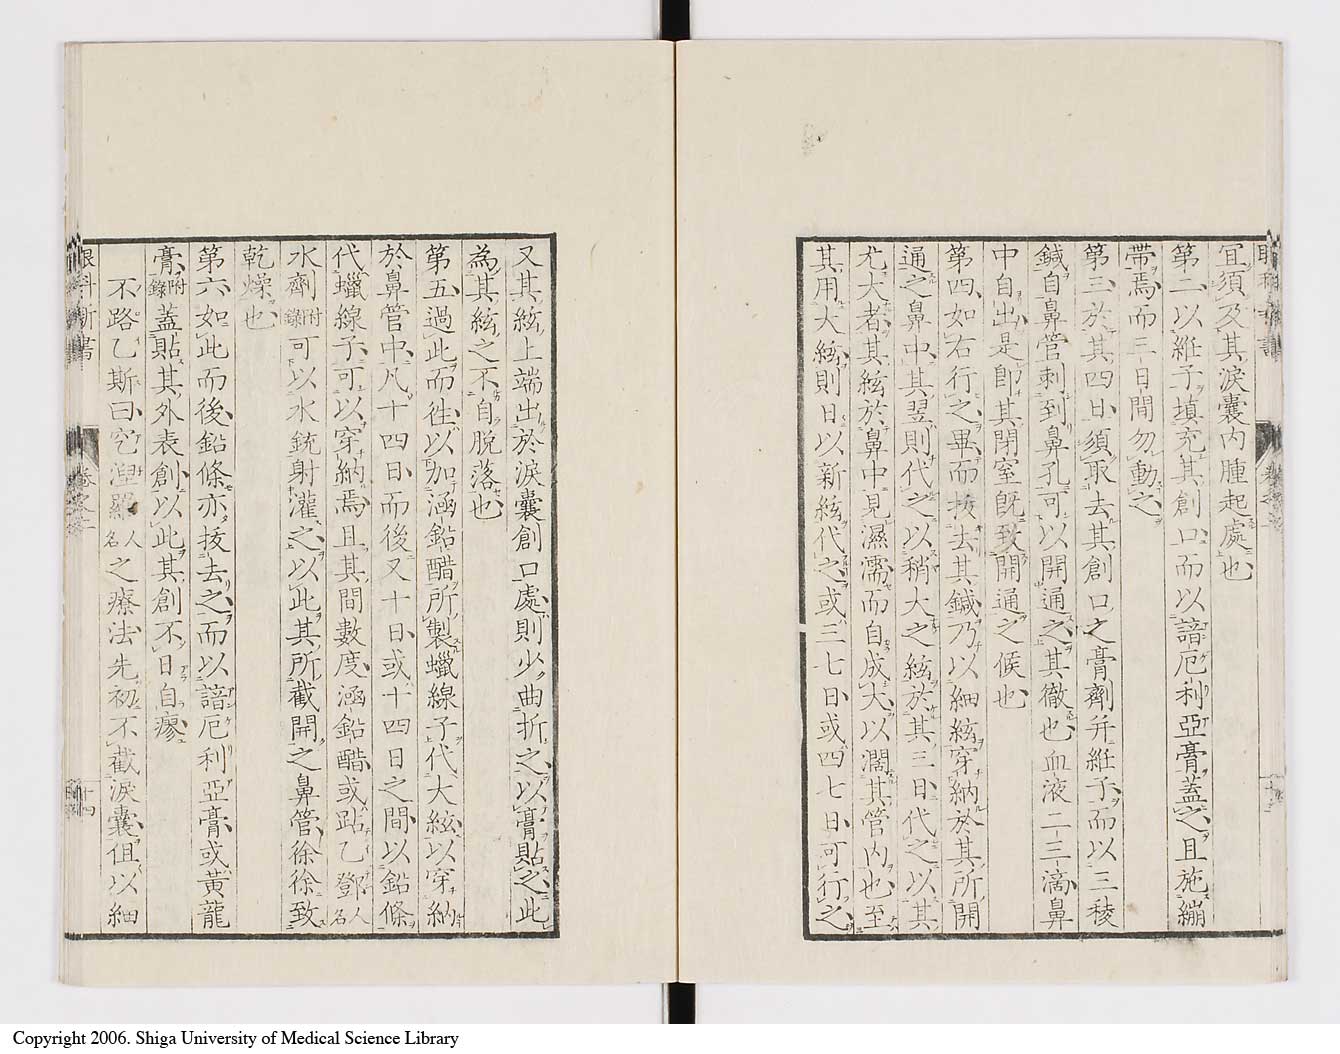 宜須及其淚囊內腫起處也
第二以維子填充其創口而以諳厄利亞膏蓋之且施繃
帶焉而三日間勿動之
第三於其四日須取去其創口之膏劑幷維子而以三稜
鍼自鼻管刺到鼻孔可以開通之其徹也血液二三滴鼻
中自出是卽其閉室旣致開通之候也
第四如右行之畢而拔去其鍼乃以細絃穿納於其所開
通之鼻中其翌則代之以稍大之絃於其三日代之以其
尤大者其絃於鼻中見濕濡而自成大以濶其管內也至
其用大絃則日以新絃代之或三七日或四七日可行之
又其絃上端出於淚囊創口處則少曲折之以膏貼之此
為其絃之不自脫落也
第五過此而徃以加涵鉛醋所製蠟線子代大絃以穿納
於鼻管中凡十四日而後又十日或十四日之間以鉛條
代蠟線子可以穿納焉且其間數度涵鉛醋或跕乙鄧人名
水劑附錄可以水銃射灌之以此其所截開之鼻管徐徐致
乾燥也
第六如此而後鉛條亦拔去之而以諳厄利亞膏或黃龍
膏附錄蓋貼其外表創以此其創不日自瘳
不路乙斯曰它涅羅人名之療法先初不截淚囊但以細
眼科新書
卷之二
十四
Copyright 2006. Shiga University of Medical Science Library